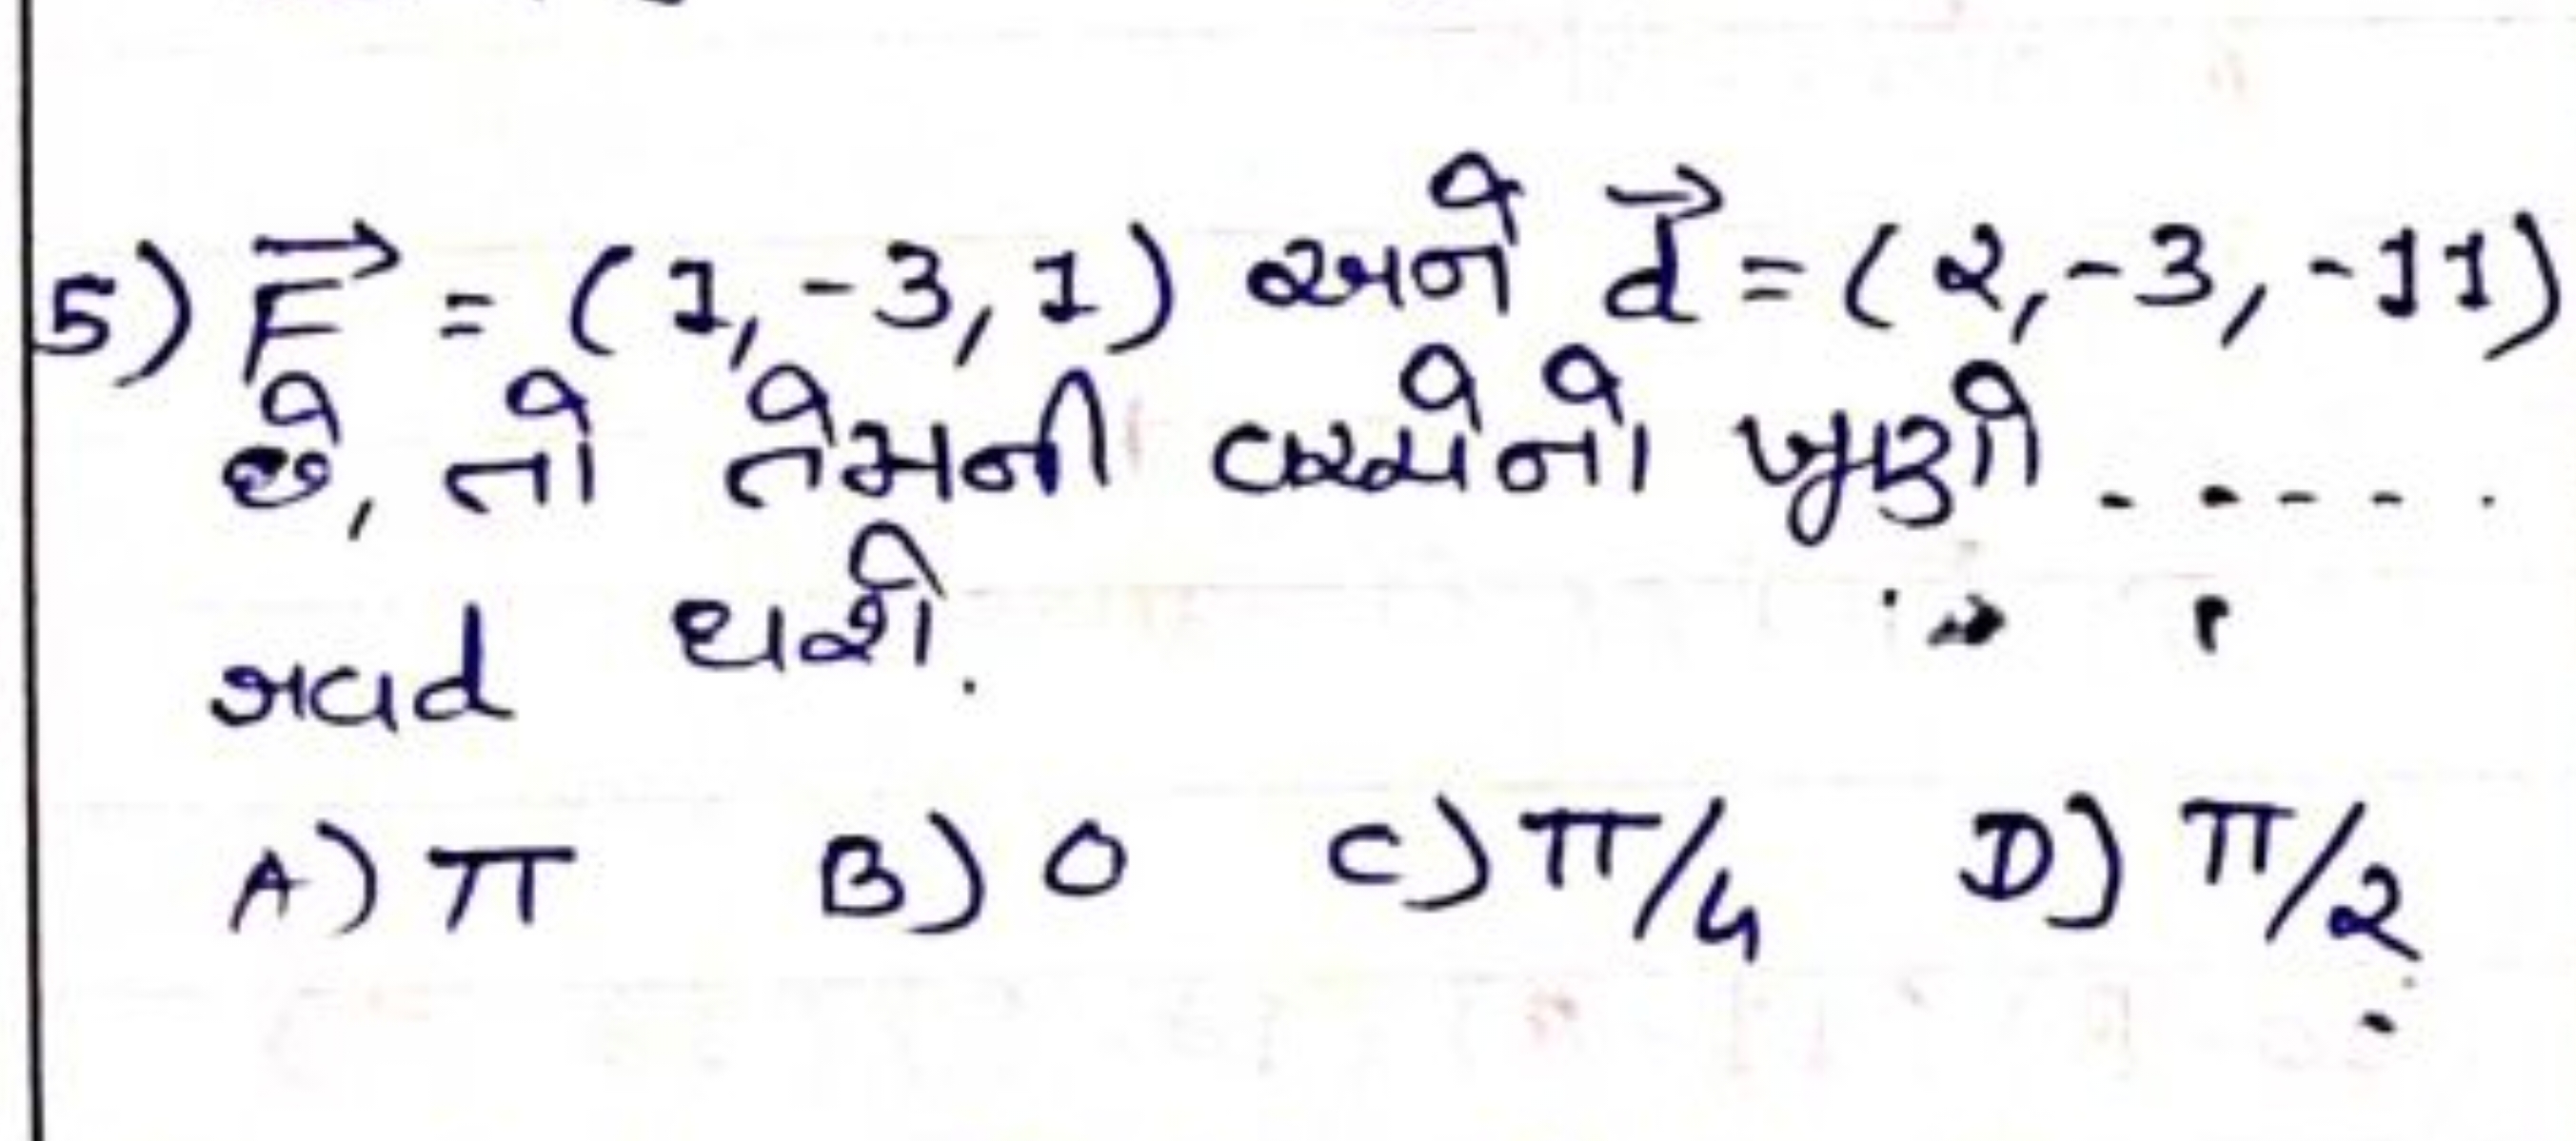 5) F⃗ = (1, -3, 1) અને d⃗ = (2, -3, -11)
છે, તો તેમની વચ્ચેનો ખૂણો - - - - - .
થશે.
A) π B) 0 C) π/4 D) π/2